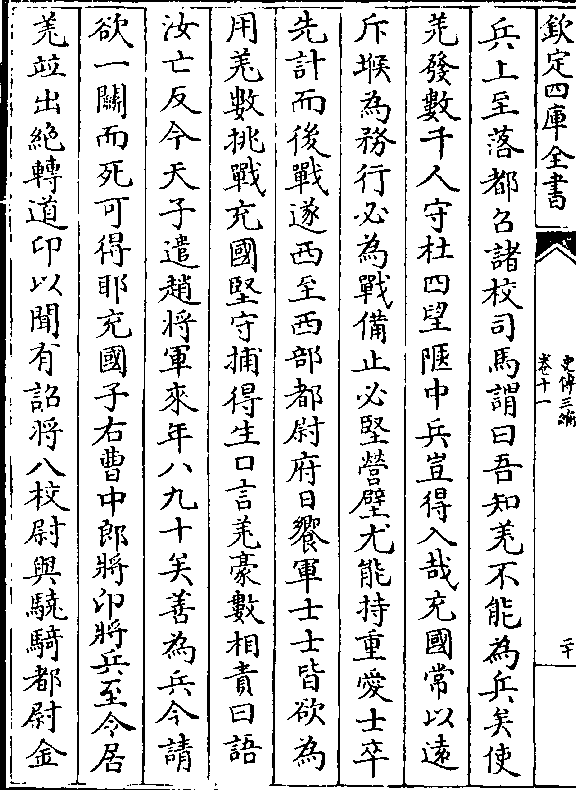 欽定四庫全書
史傳三編
卷十一
二十
兵上至落都召諸校司馬謂曰吾知羌不能為兵矣使
羌發數千人守杜四望陿中兵豈得入哉充國常以遠
斥堠為務行必為戰備止必堅營壁尤能持重愛士卒
先計而後戰遂西至西部都尉府日饗軍士士皆欲為
用羌數挑戰充國堅守捕得生口言羌豪數相責曰語
汝亡反今天子遣趙將軍來年八九十矣善為兵今請
欲一鬭而死可得耶充國子右曹中郎將卬將兵至令居
羌竝出絶轉道卬以聞有詔將八校尉與驍騎都尉金